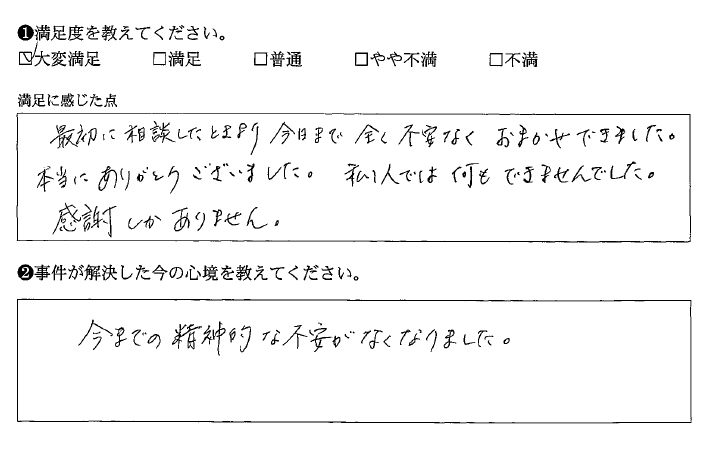 ❶満足度を教えてください。
☑大変満足 □満足 □普通 □やや不満 □不満
満足に感じた点
最初に相談したときより今日まで全く不安なくおまかせできました。
本当にありがとうございました。 私1人では何もできませんでした。
感謝しかありません。
❷事件が解決した今の心境を教えてください。
今までの精神的な不安がなくなりました。